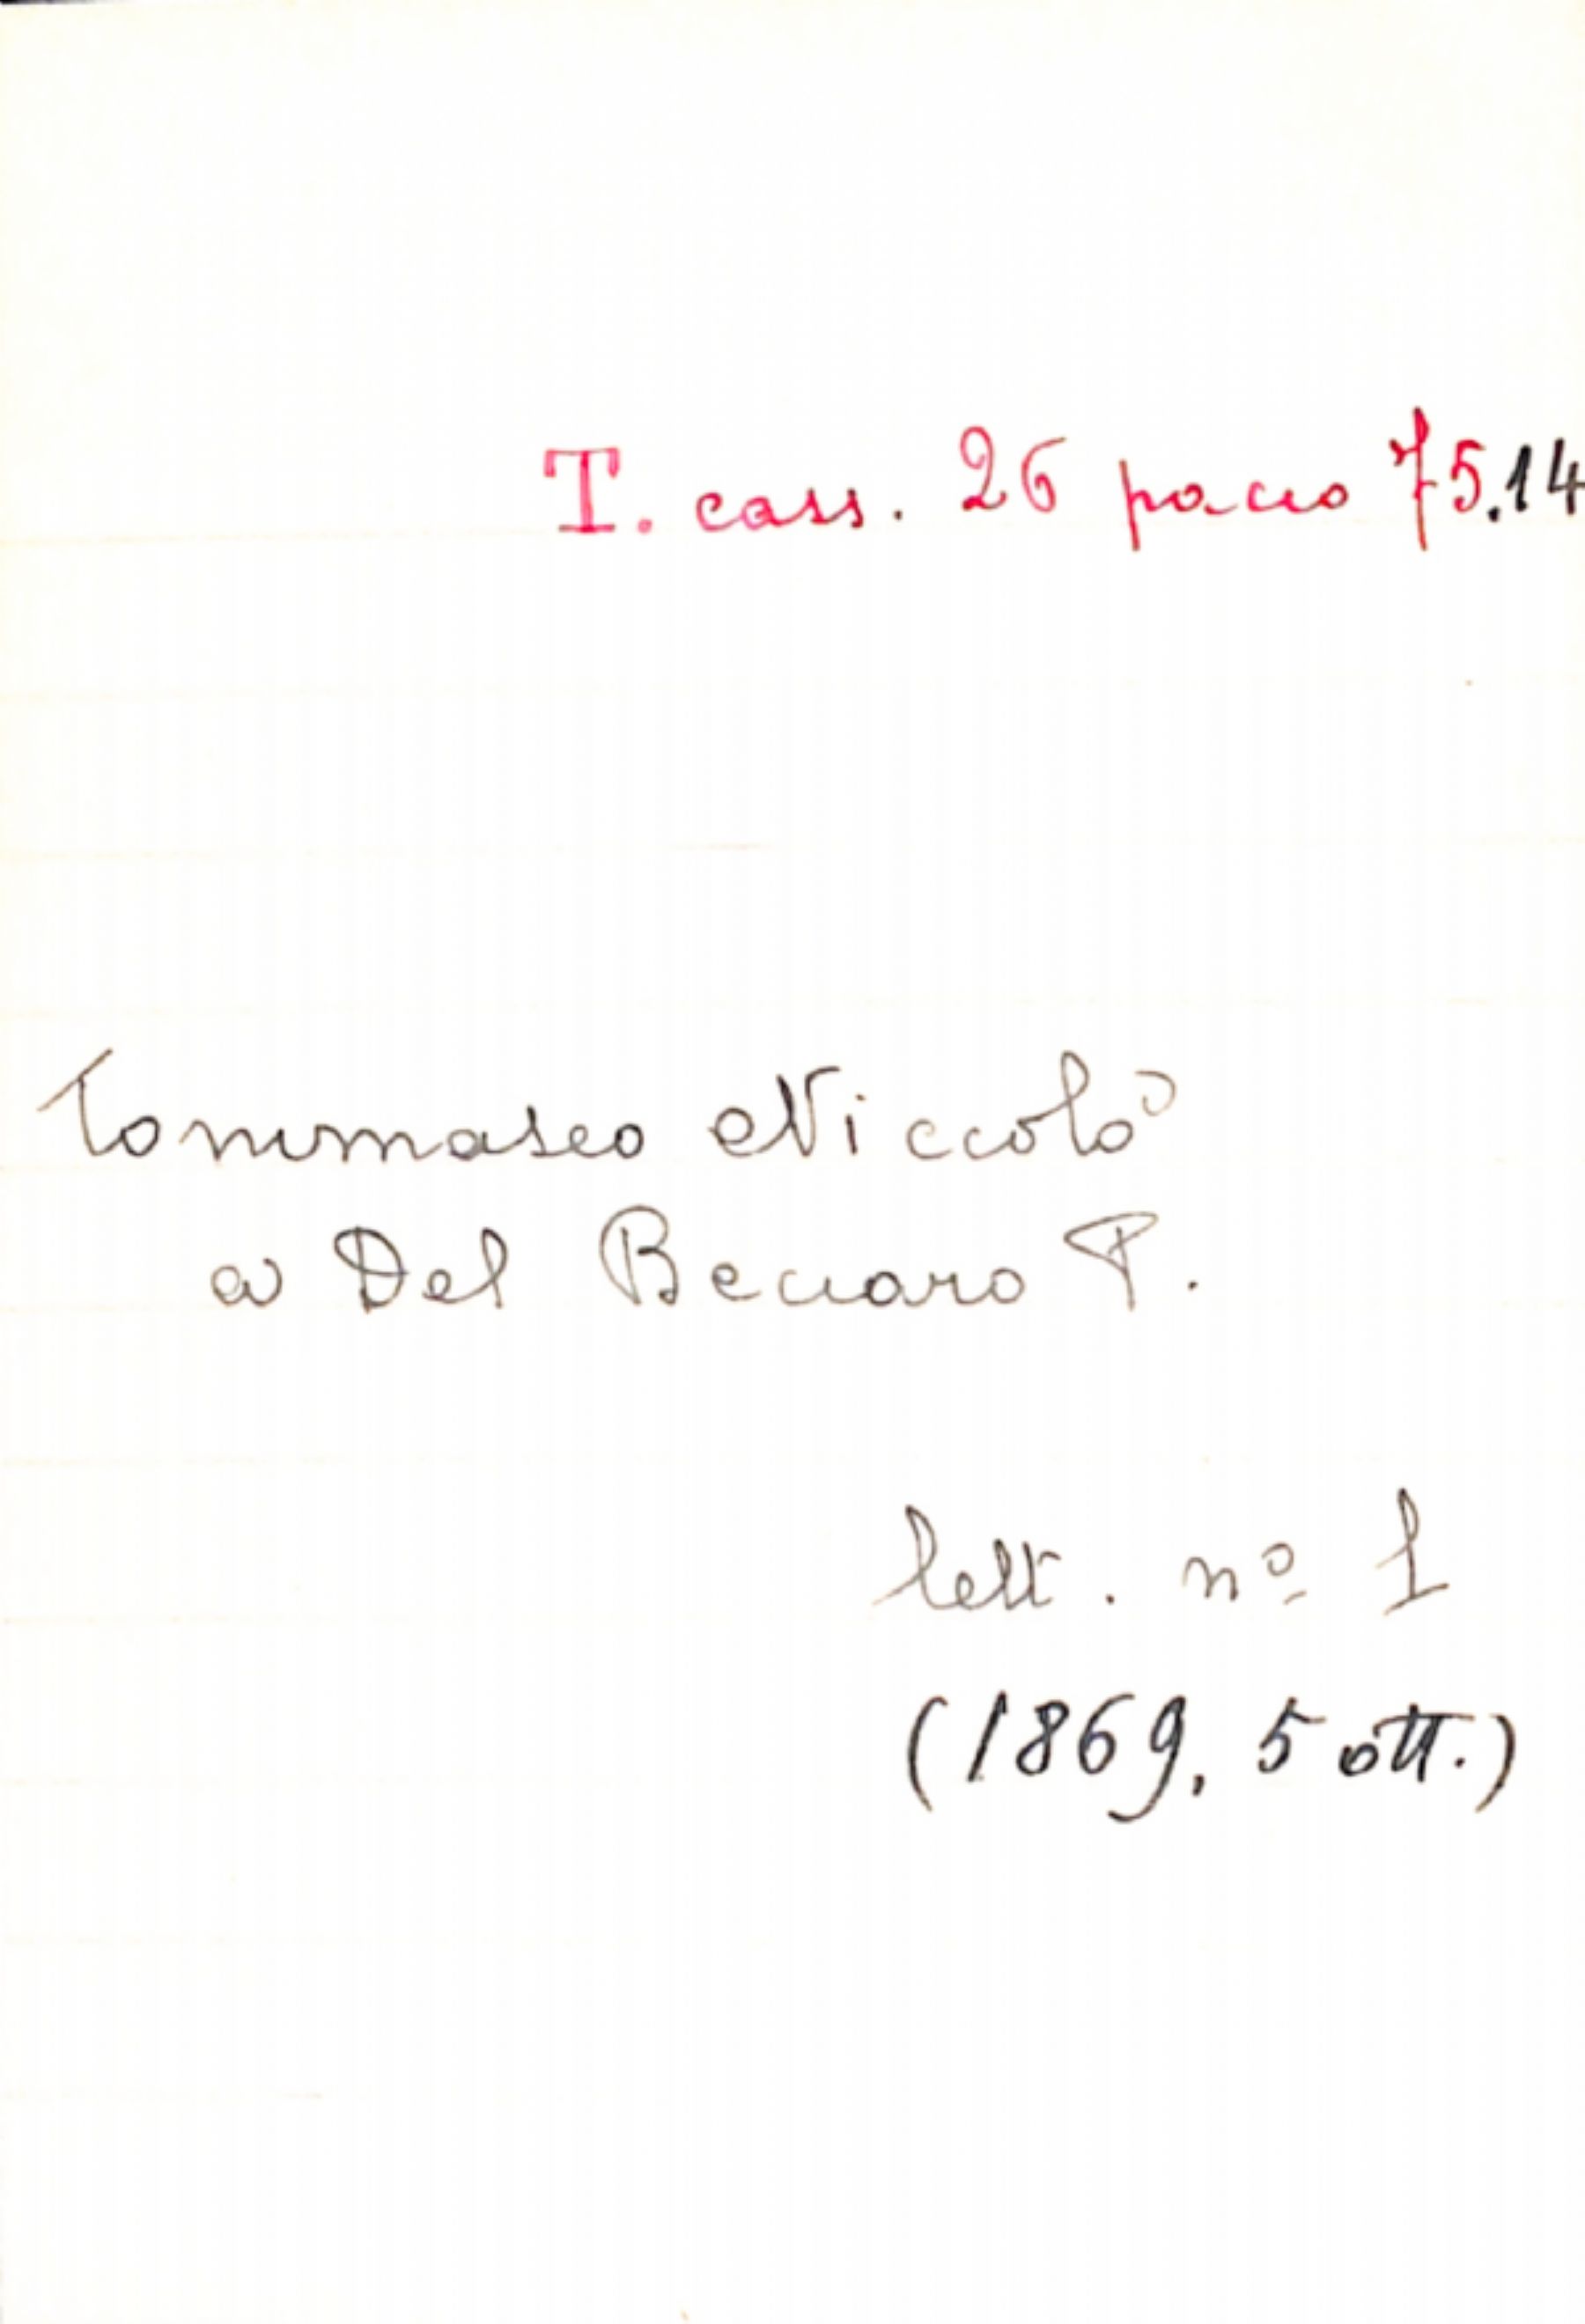 T. cass. 26 pacco 75.14
Tommaseo Niccolò
a Del Beccaro P.
lett. nº 1
(1869, 5 ott.)